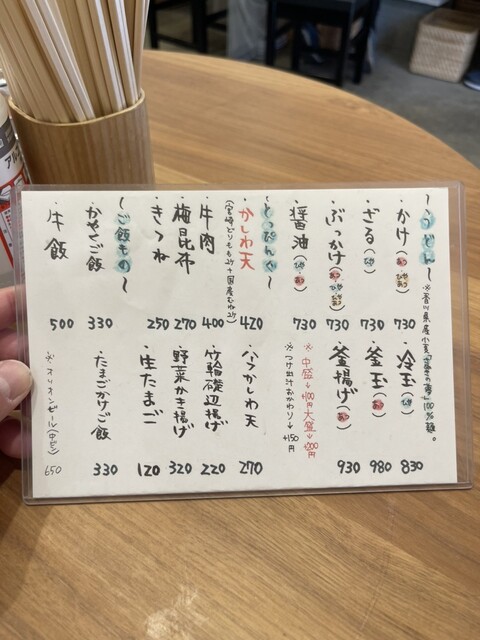 〜うどん〜 ※香川県産小麦「さぬきの夢」100%麺。
・かけ(あつ ひやあつ) 730
・冷玉(ひや) 830
・ざる(ひや) 730
・釜玉(あつ) 980
・ぶっかけ(あつ ひや) 730
・釜揚げ(あつ) 930
・醤油(ひや あつ) 730
※中盛→+100円 大盛→+200円
※つけ出汁おかわり→+150円
〜とっぴんぐ〜
・かしわ天 420
(宮崎どりもも2ケ+国産むね2ケ)
・ハーフかしわ天 270
・牛肉 400
・竹輪磯辺揚げ 220
・梅昆布 270
・野菜かき揚げ 320
・きつね 250
・生たまご 120
〜ご飯もの〜
・かやくご飯 330
・たまごかけご飯 330
・牛飯 500
※オリオンビール(中ビン) 650
アル